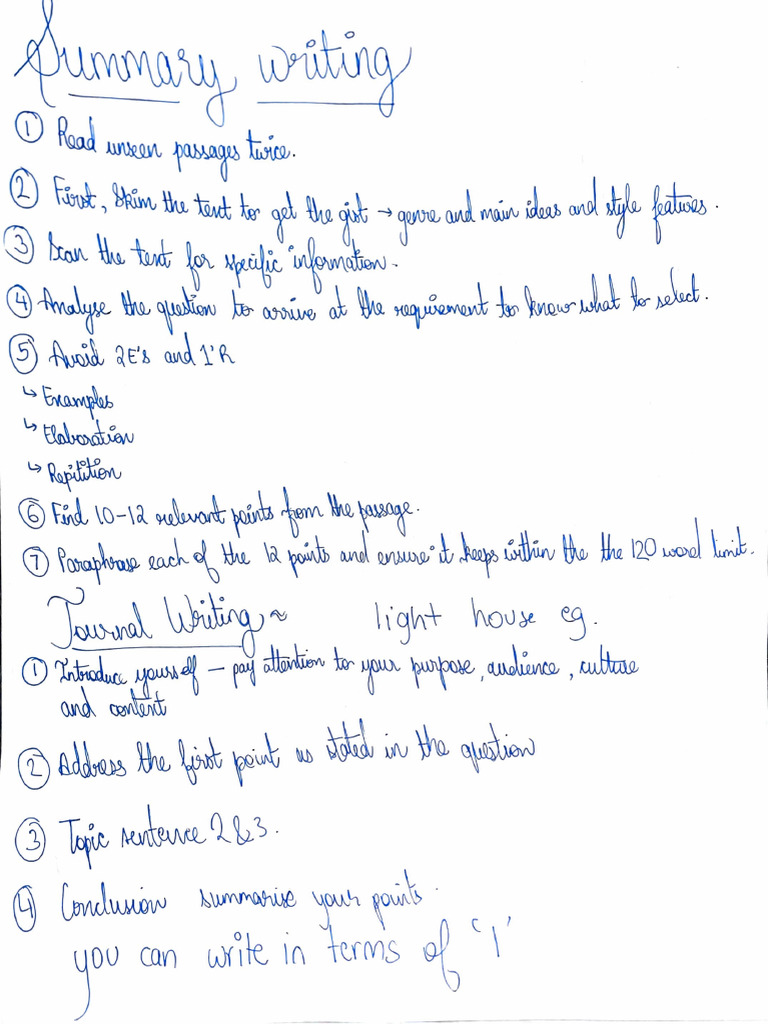 Summary writing
① Read unseen passages twice.
② First, Skim the text to get the gist → genre and main ideas and style features.
③ Scan the text for specific information.
④ Analyse the question to arrive at the requirement to know what to select.
⑤ Avoid 2E's and 1'R
↳ Examples
↳ Elaboration
↳ Repitition
⑥ Find 10-12 relevant points from the passage.
⑦ Paraphrase each of the 12 points and ensure it keeps within the the 120 word limit.
Journal Writing ~ light house eg.
① Introduce yourself – pay attention to your purpose, audience, culture
and content
② Address the first point as stated in the question
③ Topic sentence 2 & 3.
④ Conclusion summarise your points.
you can write in terms of 'I'